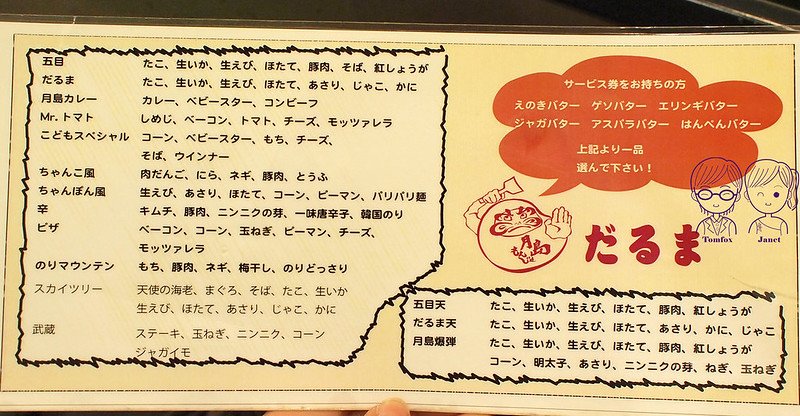 五目 たこ、生いか、生えび、ほたて、豚肉、そば、紅しょうが
だるま たこ、生いか、生えび、ほたて、あさり、じゃこ、かに
月島カレー カレー、ベビースター、コンビーフ
Mr. トマト しめじ、ベーコン、トマト、チーズ、モッツァレラ
こどもスペシャル コーン、ベビースター、もち、チーズ、
そば、ウインナー
ちゃんこ風 肉だんご、にら、ネギ、豚肉、とうふ
ちゃんぽん風 生えび、あさり、ほたて、コーン、ピーマン、パリパリ麺
辛 キムチ、豚肉、ニンニクの芽、一味唐辛子、韓国のり
ピザ ベーコン、コーン、玉ねぎ、ピーマン、チーズ、
モッツァレラ
のりマウンテン もち、豚肉、ネギ、梅干し、のりどっさり
スカイツリー 天使の海老、まぐろ、そば、たこ、生いか
生えび、ほたて、あさり、じゃこ、かに
武蔵 ステーキ、玉ねぎ、ニンニク、コーン
ジャガイモ
サービス券をお持ちの方
えのきバター ゲソバター エリンギバター
ジャガバター アスパラバター はんぺんバター
上記より一品
選んで下さい！
月島
だるま
Tomfox Janet
五目天 たこ、生いか、生えび、ほたて、豚肉、紅しょうが
だるま天 たこ、生いか、生えび、ほたて、あさり、かに、じゃこ
月島爆弾 たこ、生いか、生えび、ほたて、豚肉、紅しょうが
コーン、明太子、あさり、ニンニクの芽、ねぎ、玉ねぎ